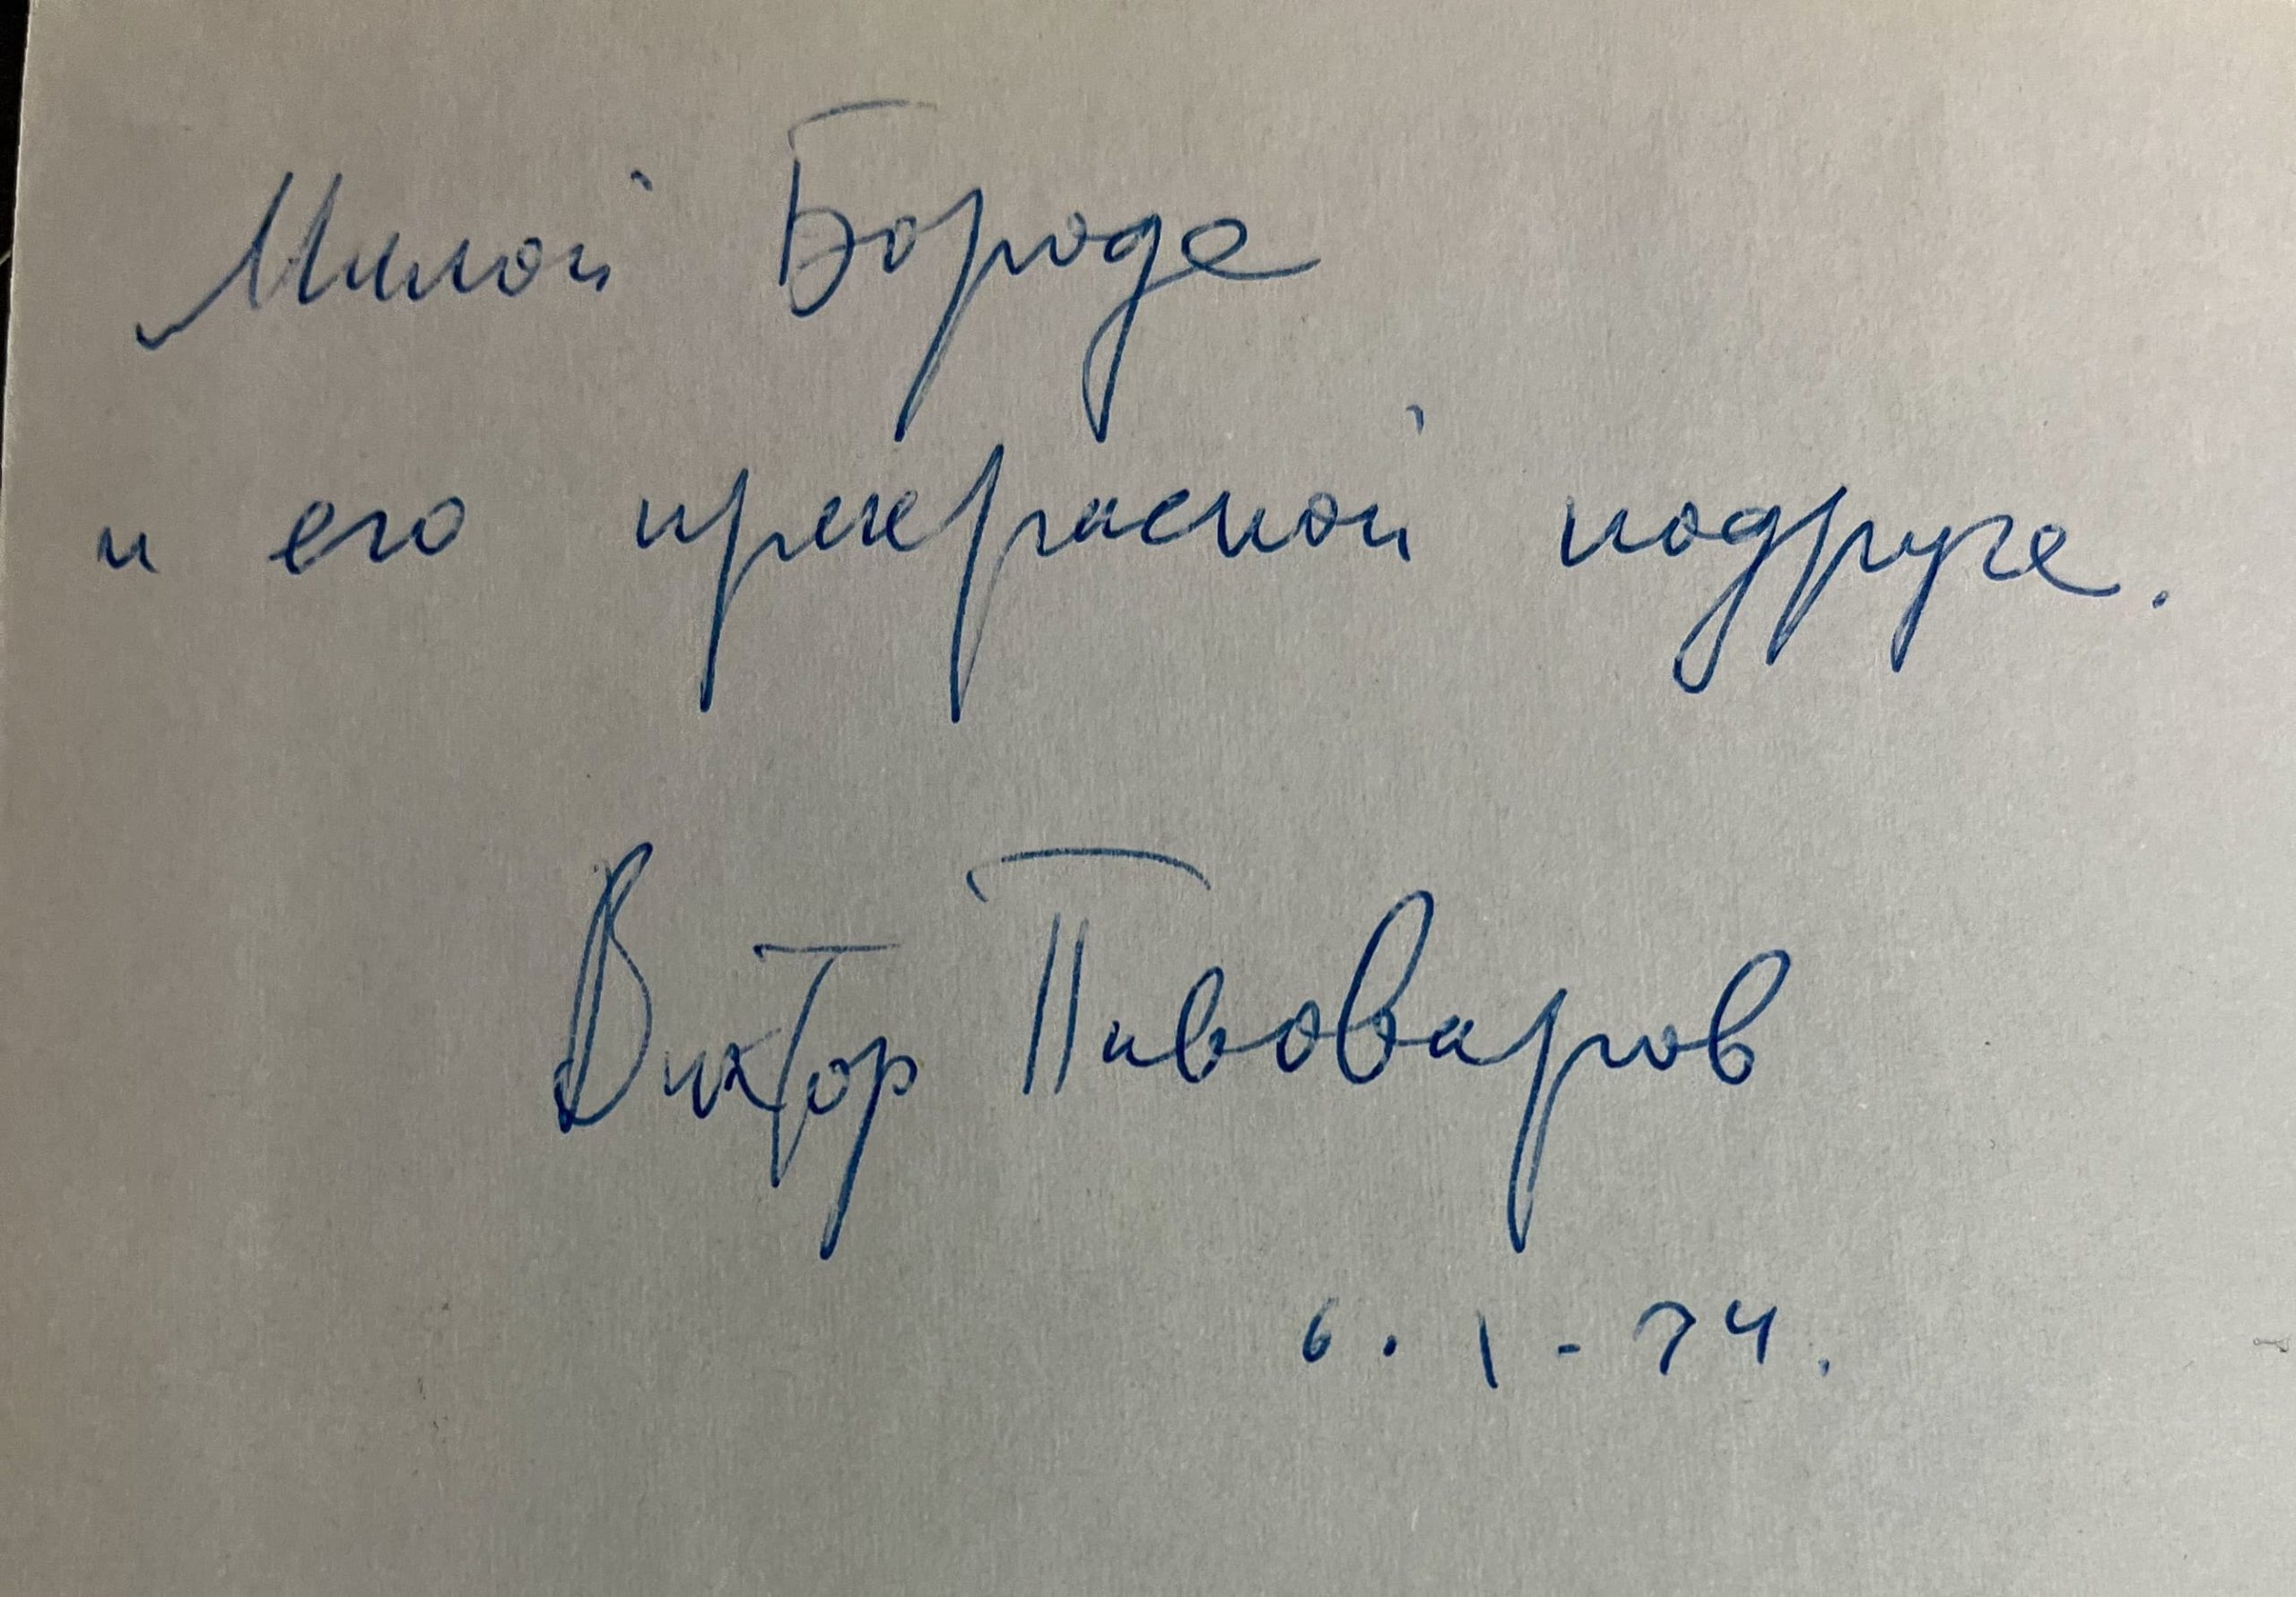 Милой Бороде
и его прекрасной подруге.
Виктор Пивоваров
6. I - 74.